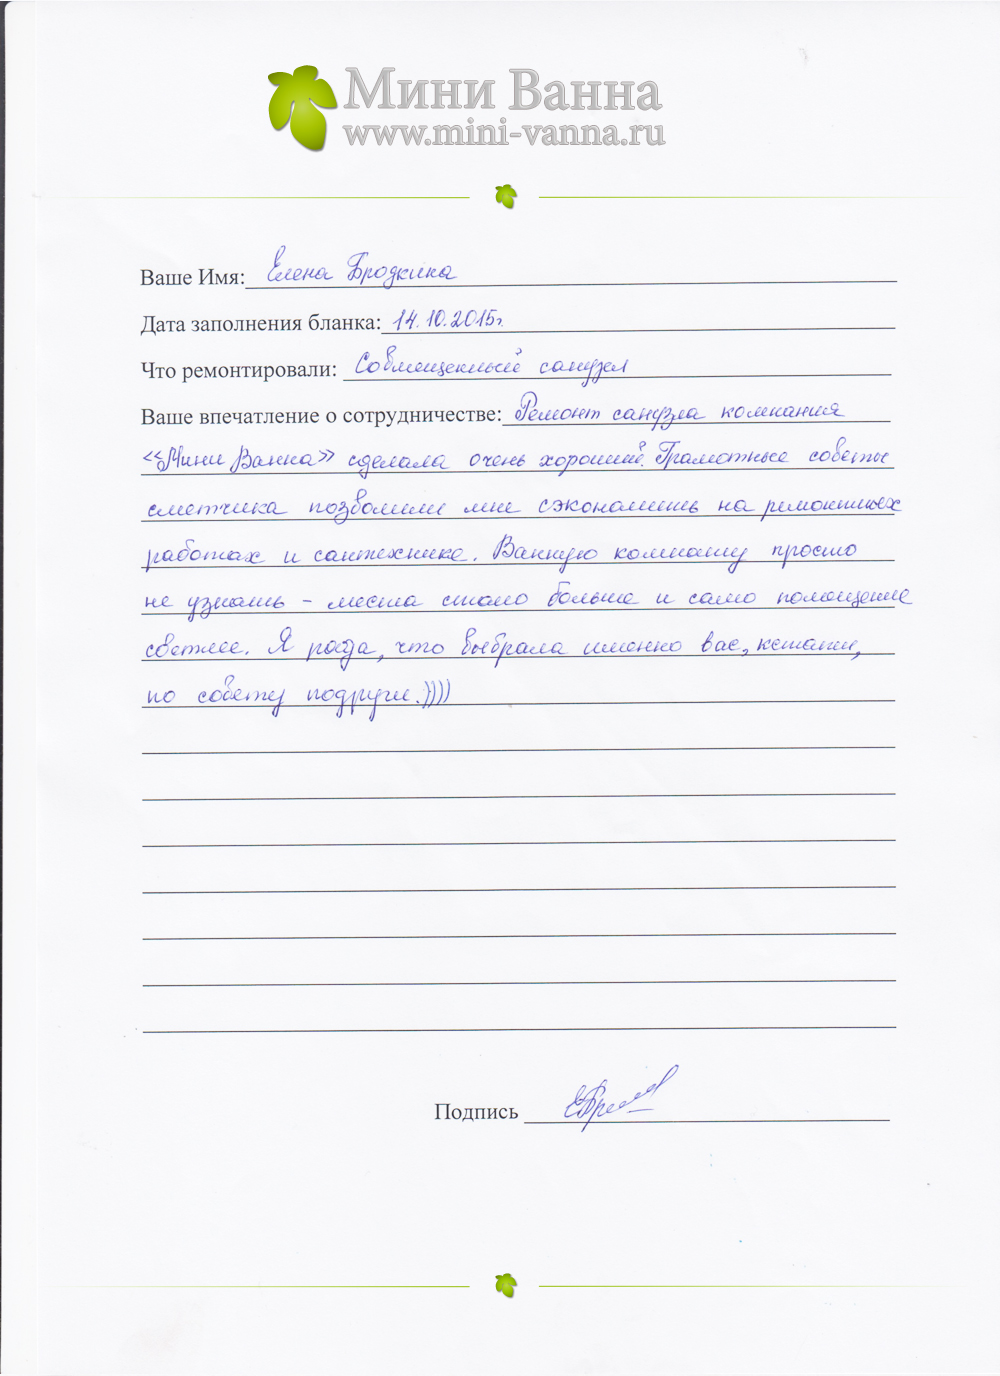 Мини Ванна
www.mini-vanna.ru
Ваше Имя: Елена Бродкина
Дата заполнения бланка: 14.10.2015г.
Что ремонтировали: Совмещенный санузел
Ваше впечатление о сотрудничестве: Ремонт санузла компания
«Мини Ванна» сделала очень хороший. Грамотные советы
сметчика позволили мне сэкономить на ремонтных
работах и сантехнике. Ванную комнату просто
не узнать - места стало больше и само помещение
светлее. Я рада, что выбрала именно вас, кстати,
по совету подруги.))))
Подпись